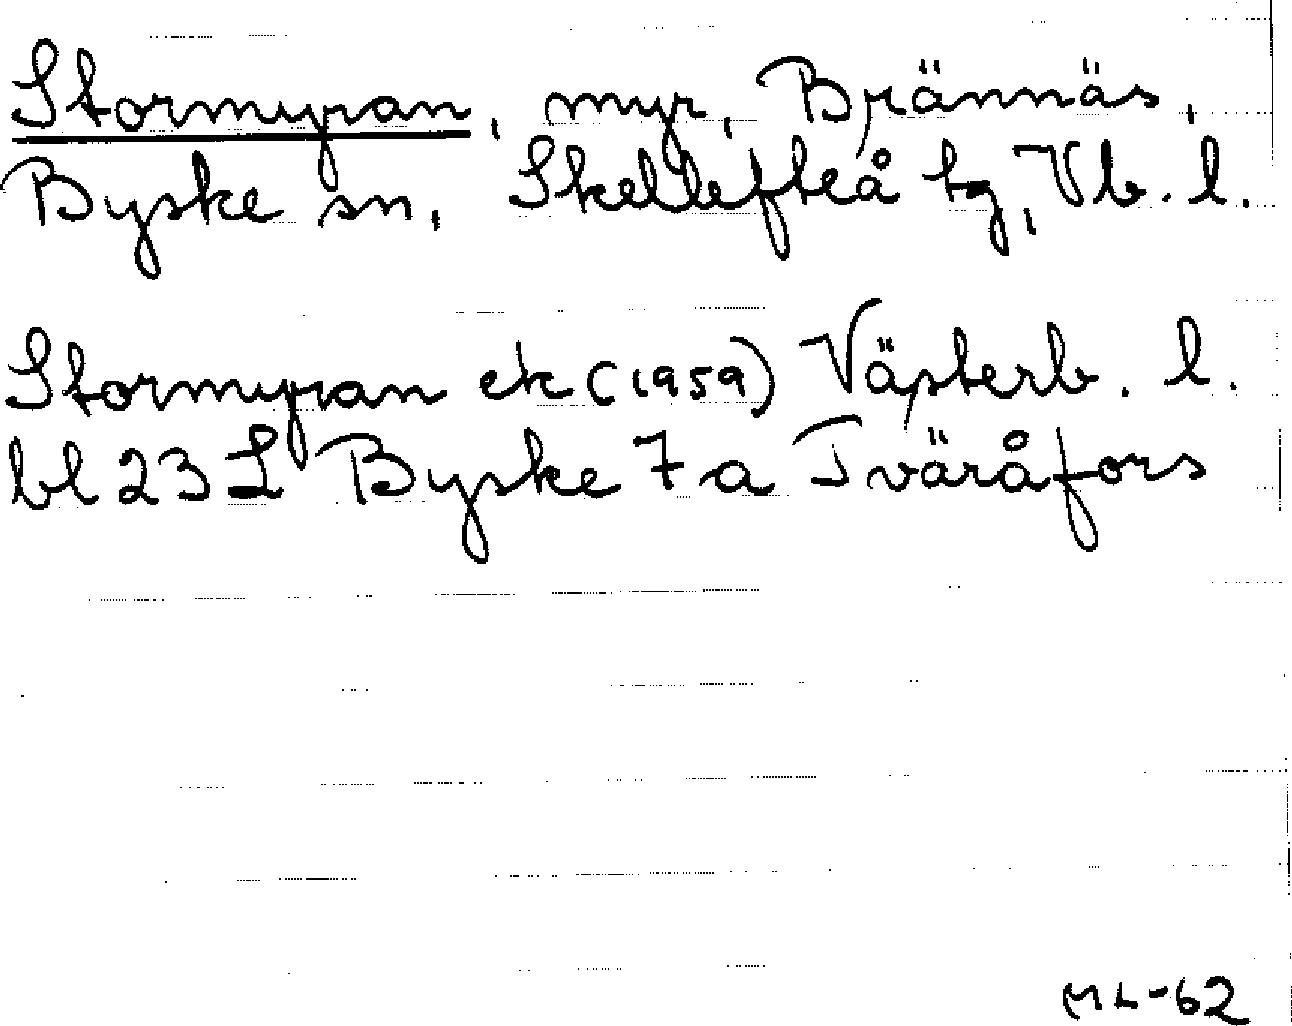 Stormyran, myr, Brännäs,
Byske sn, Skellefteå tg, Vb. l.
Stormyran ek (1959) Västerb. l.
bl 23 L Byske 7 a Tväråfors
ML-62